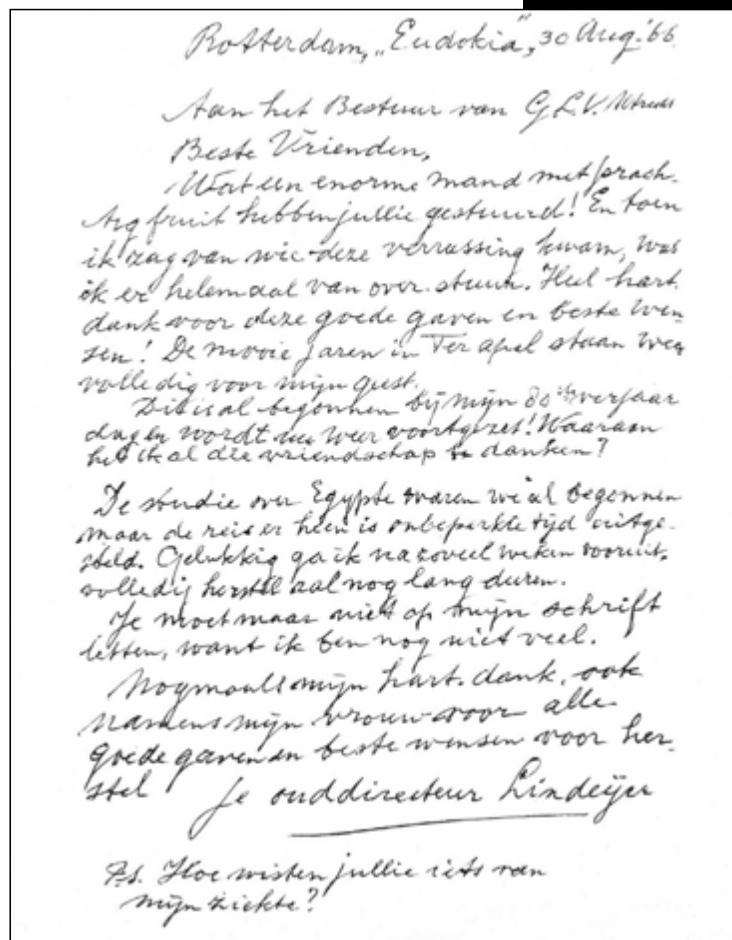 Rotterdam, „Eudokia”, 30 Aug. '66
Aan het Bestuur van G.L.V. Utrecht
Beste Vrienden,
Wat een enorme mand met prach-
tig fruit hebben jullie gestuurd! En toen
ik zag van wie deze verrassing kwam, was
ik er helemaal van over stuur. Heel hart.
dank voor deze goede gaven en beste wen-
sen! De mooie jaren in Ter Apel staan weer
volledig voor mijn geest.
Dit is al begonnen bij mijn 80ste verjaar
dag en wordt nu weer voortgezet! Waaraan
heb ik al die vriendschap te danken?
De studie over Egypte waren we al begonnen
maar de reis er heen is onbeperkte tijd uitge-
steld. Gelukkig ga ik na zoveel weken vooruit,
volledig herstel zal nog lang duren.
Je moet maar niet op mijn schrift
letten, want ik ben nog niet veel.
Nogmaals mijn hart. dank, ook
namens mijn vrouw voor alle
goede gaven en beste wensen voor her-
stel Je ouddirecteur Lindeijer
P.s. Hoe wisten jullie iets van
mijn ziekte?